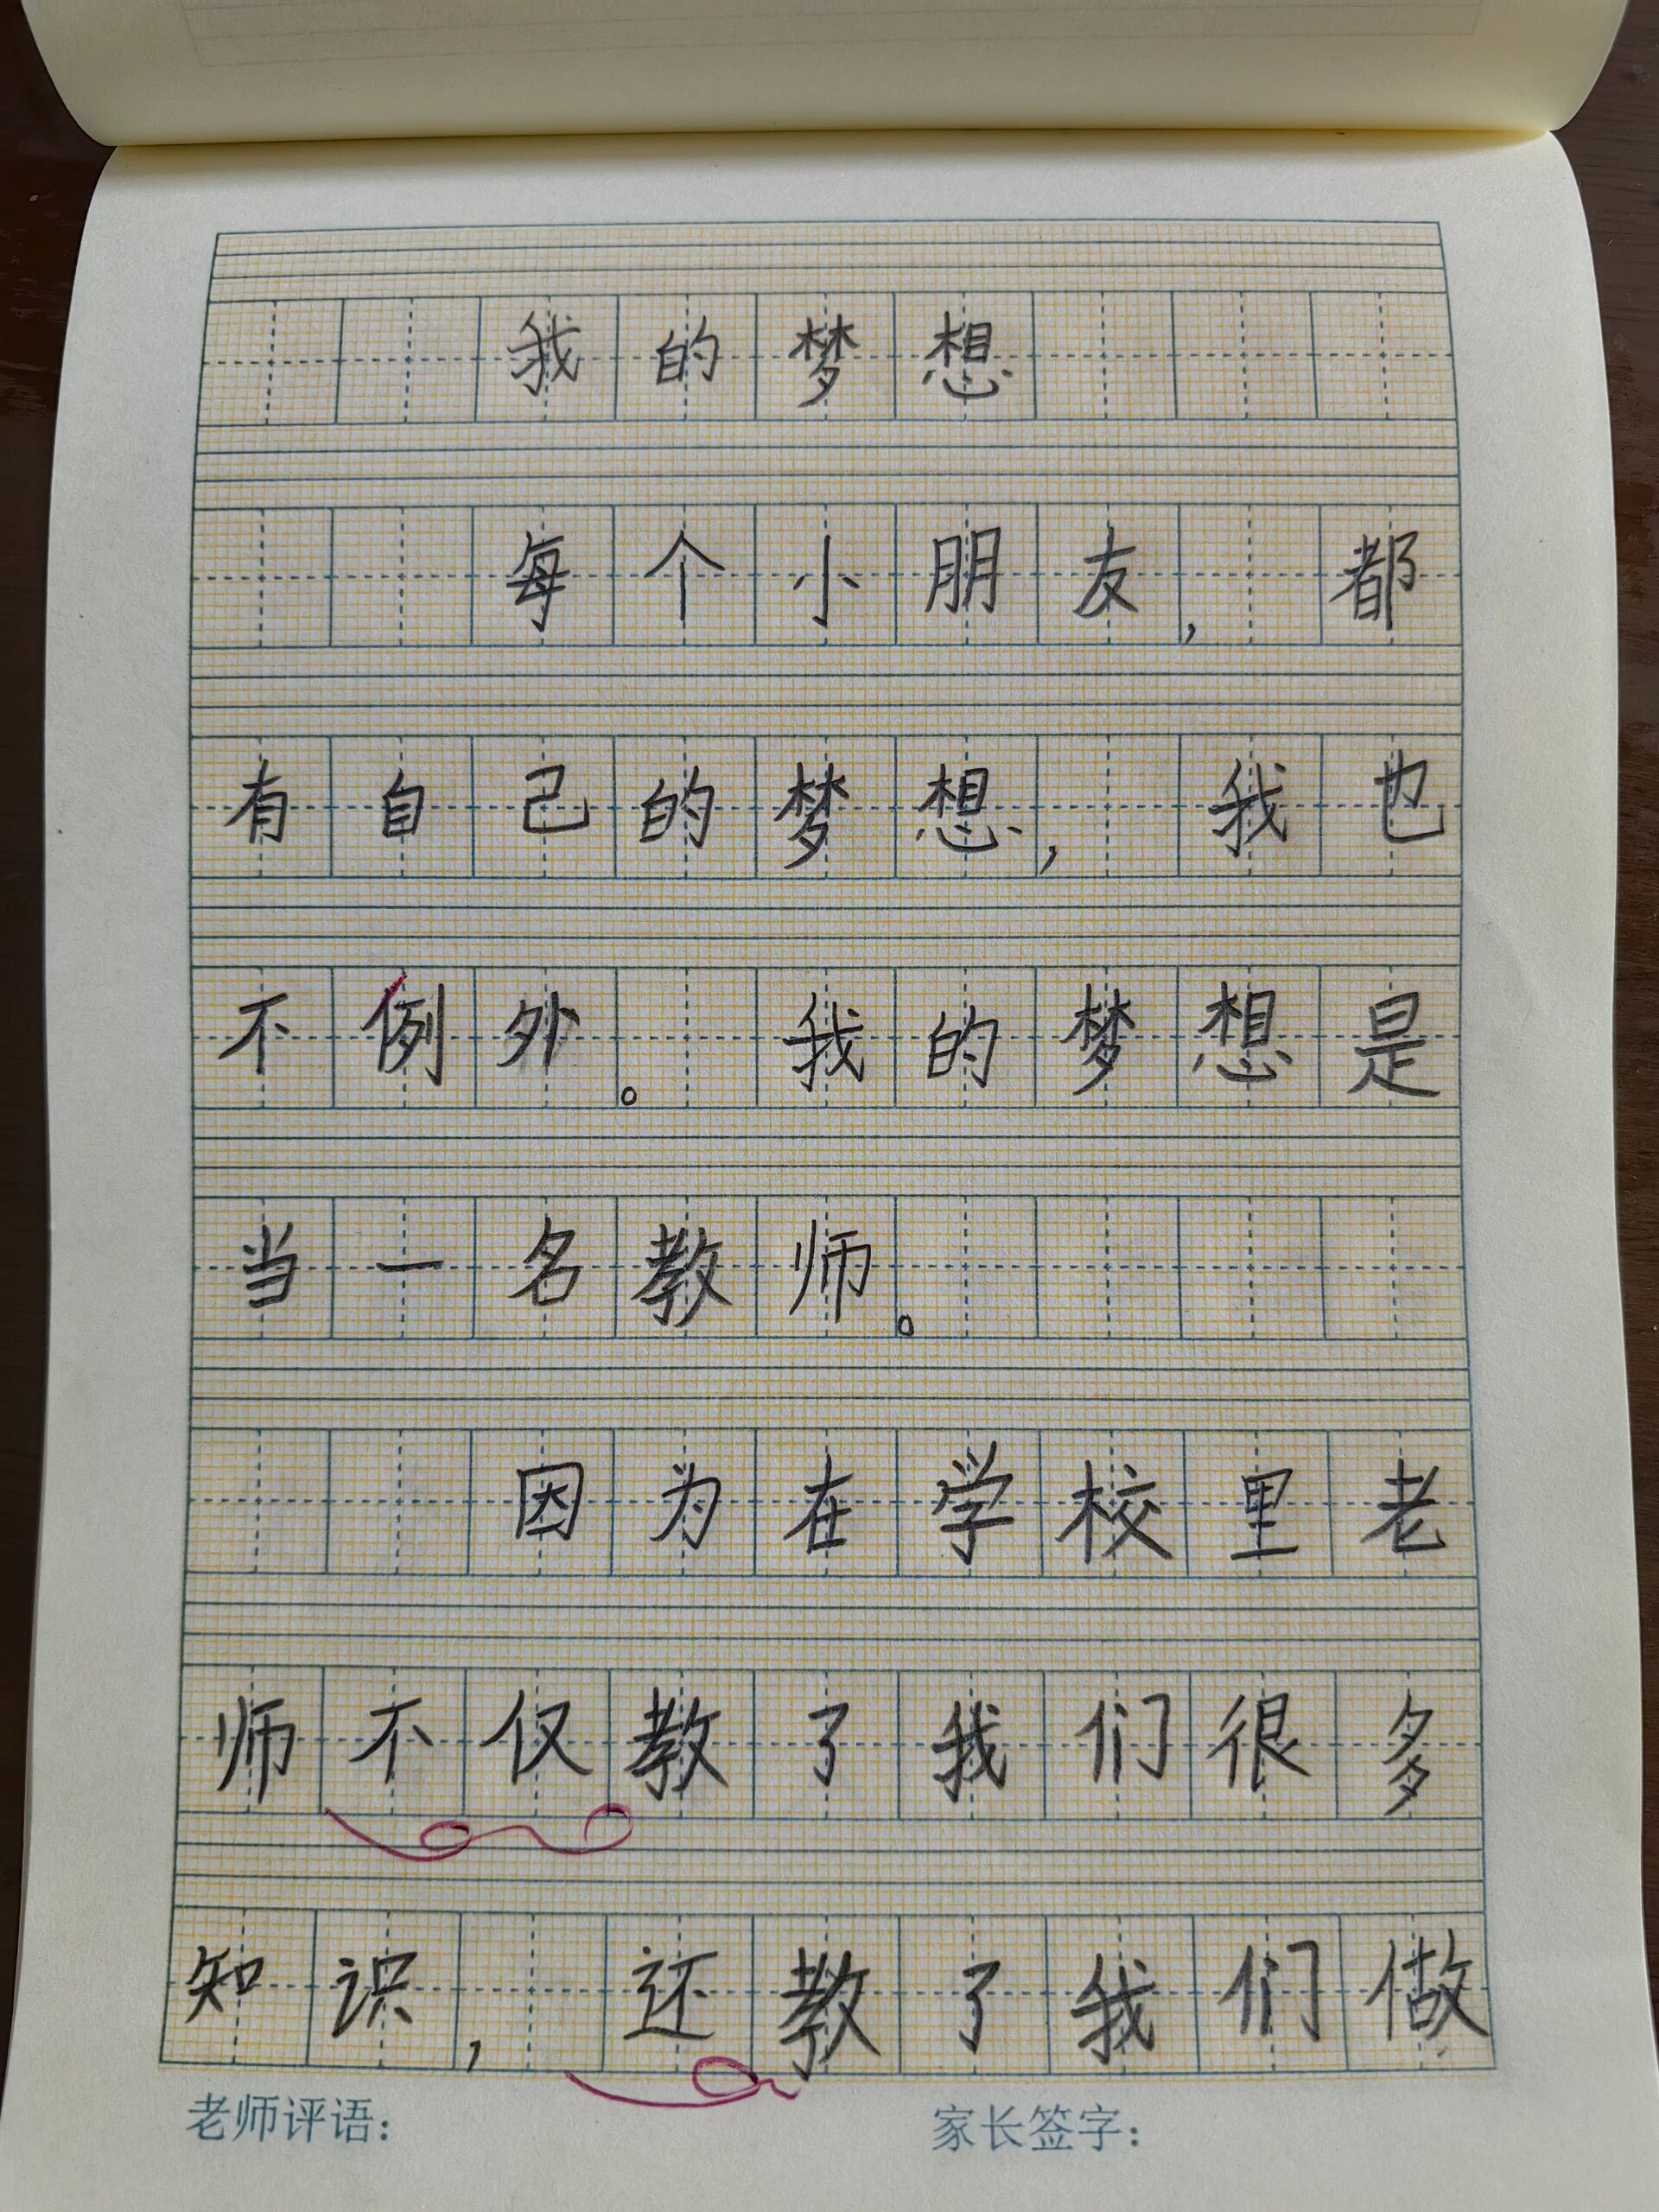 我的梦想
每个小朋友，都
有自己的梦想，我也
不例外。我的梦想是
当一名教师。
因为在学校里老
师不仅教了我们很多
知识，还教了我们做
老师评语： 家长签字：